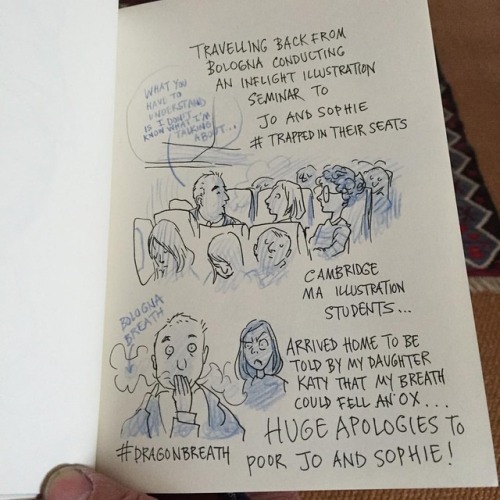 TRAVELLING BACK FROM
BOLOGNA CONDUCTING
AN INFLIGHT ILLUSTRATION
SEMINAR TO
JO AND SOPHIE
# TRAPPED IN THEIR SEATS
WHAT YOU
HAVE TO
UNDERSTAND
IS I DON'T
KNOW WHAT I'M
TALKING
ABOUT...
CAMBRIDGE
MA ILLUSTRATION
STUDENTS...
BOLOGNA
BREATH
ARRIVED HOME TO BE
TOLD BY MY DAUGHTER
KATY THAT MY BREATH
COULD FELL AN OX...
HUGE APOLOGIES TO
POOR JO AND SOPHIE!
#DRAGONBREATH